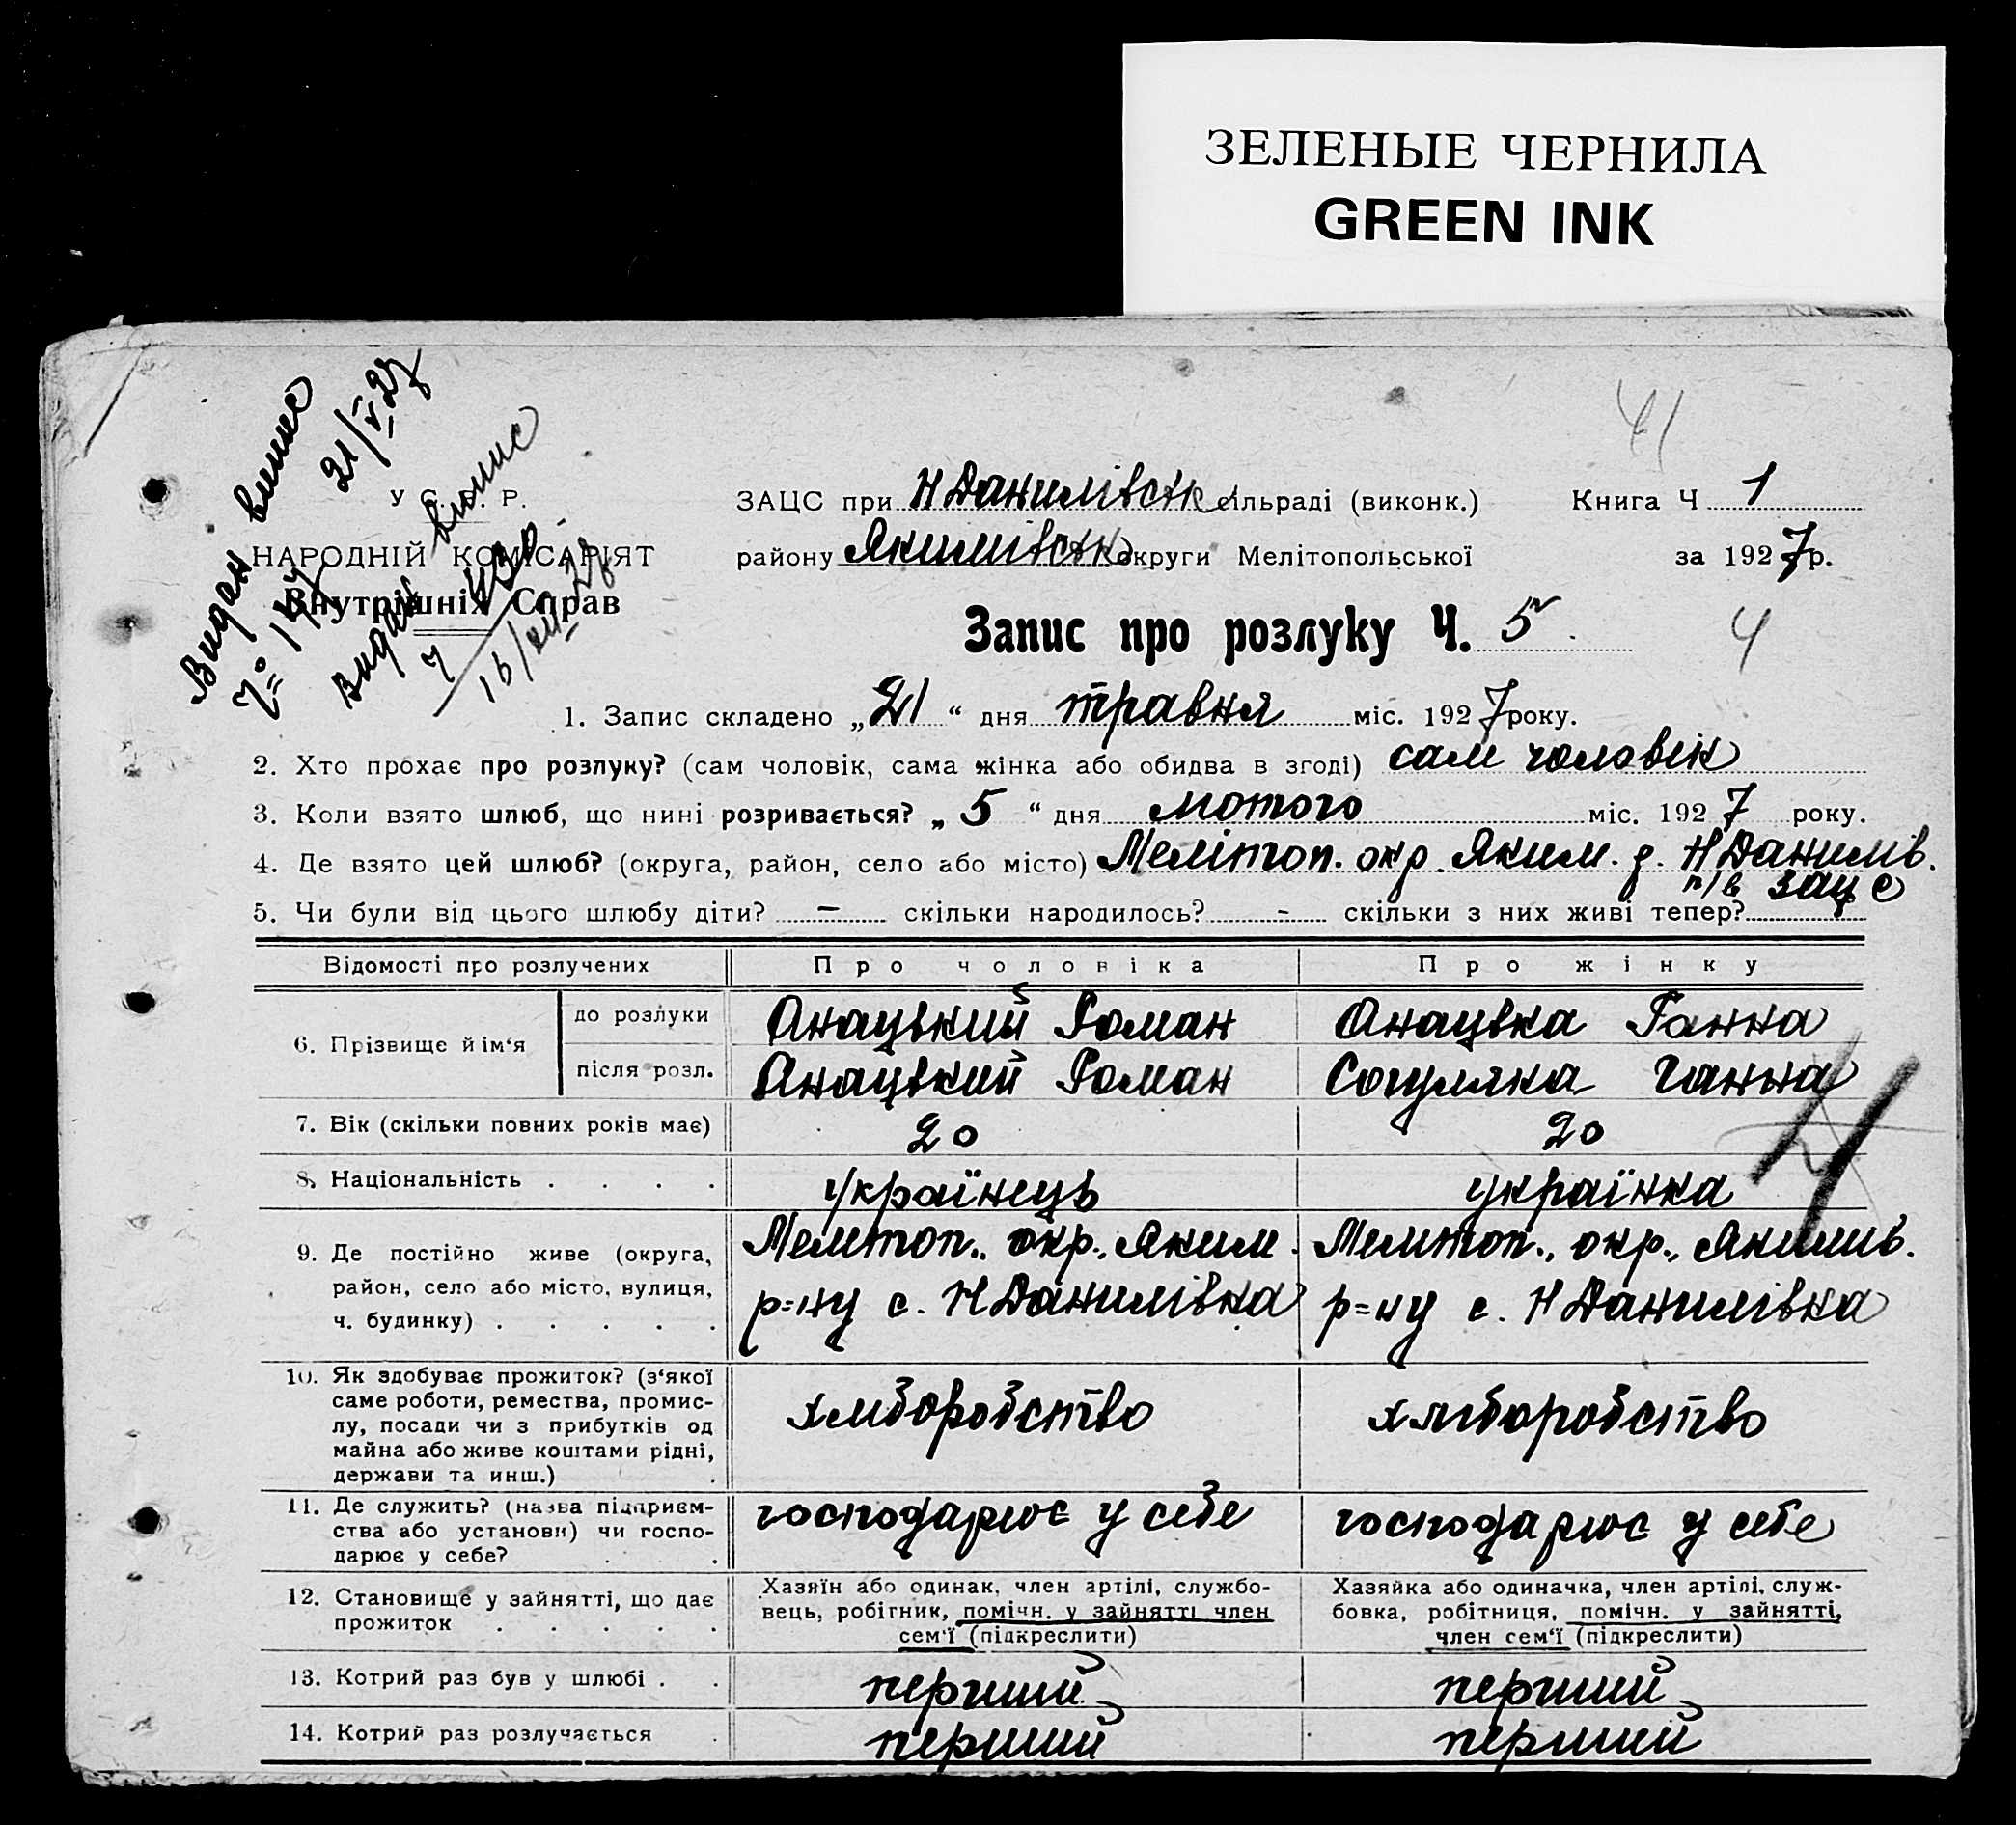 ЗЕЛЕНЫЕ ЧЕРНИЛА
GREEN INK
41
Видан випис
Ч= 147 21/V 27
Видан випис
У С. Р. Р.
НАРОДНІЙ КОМІСАРІЯТ
Внутрішніх Справ
ЗАЦС при Н Данилівськ сільраді (виконк.) Книга Ч 1
району Якимівськ округи Мелітопольської за 1927 р.
Запис про розлуку Ч. 5
4
1. Запис складено „21“ дня травня міс. 1927 року.
2. Хто прохає про розлуку? (сам чоловік, сама жінка або обидва в згоді) сам чоловік
3. Коли взято шлюб, що нині розривається? „5“ дня лютого міс. 1927 року.
4. Де взято цей шлюб? (округа, район, село або місто) Мелітоп. окр. Яким. р. Н Данилів.
п/в зацс
5. Чи були від цього шлюбу діти? – скільки народилось? - скільки з них живі тепер?
Відомості про розлучених Про чоловіка Про жінку
6. Прізвище й ім‘я до розлуки Анацький Роман Анацька Ганна
після розл. Анацький Роман Согуляка Ганна
7. Вік (скільки повних років має) 20 20
8. Національність українець українка
9. Де постійно живе (округа, Мелітоп. окр., Яким. Мелітоп., окр., Якимів.
район, село або місто, вулиця, р=ну с. Н Данилівка р=ну с. Н Данилівка
ч. будинку)
10. Як здобуває прожиток? (з‘якої
саме роботи, ремества, промис-
лу, посади чи з прибутків од хліборобство хліборобство
майна або живе коштами рідні,
держави та инш.)
11. Де служить? (назва підприєм- господарює у себе господарює у себе
ства або установи) чи госпо-
дарює у себе?
12. Становище у зайнятті, що дає Хазяїн або одинак, член артілі, службо- Хазяйка або одиначка, член артілі, служ-
прожиток вець, робітник, помічн. у зайнятті член бовка, робітниця, помічн. у зайнятті,
сем‘ї (підкреслити) член сем‘ї (підкреслити)
13. Котрий раз був у шлюбі перший перший
14. Котрий раз розлучається перший перший